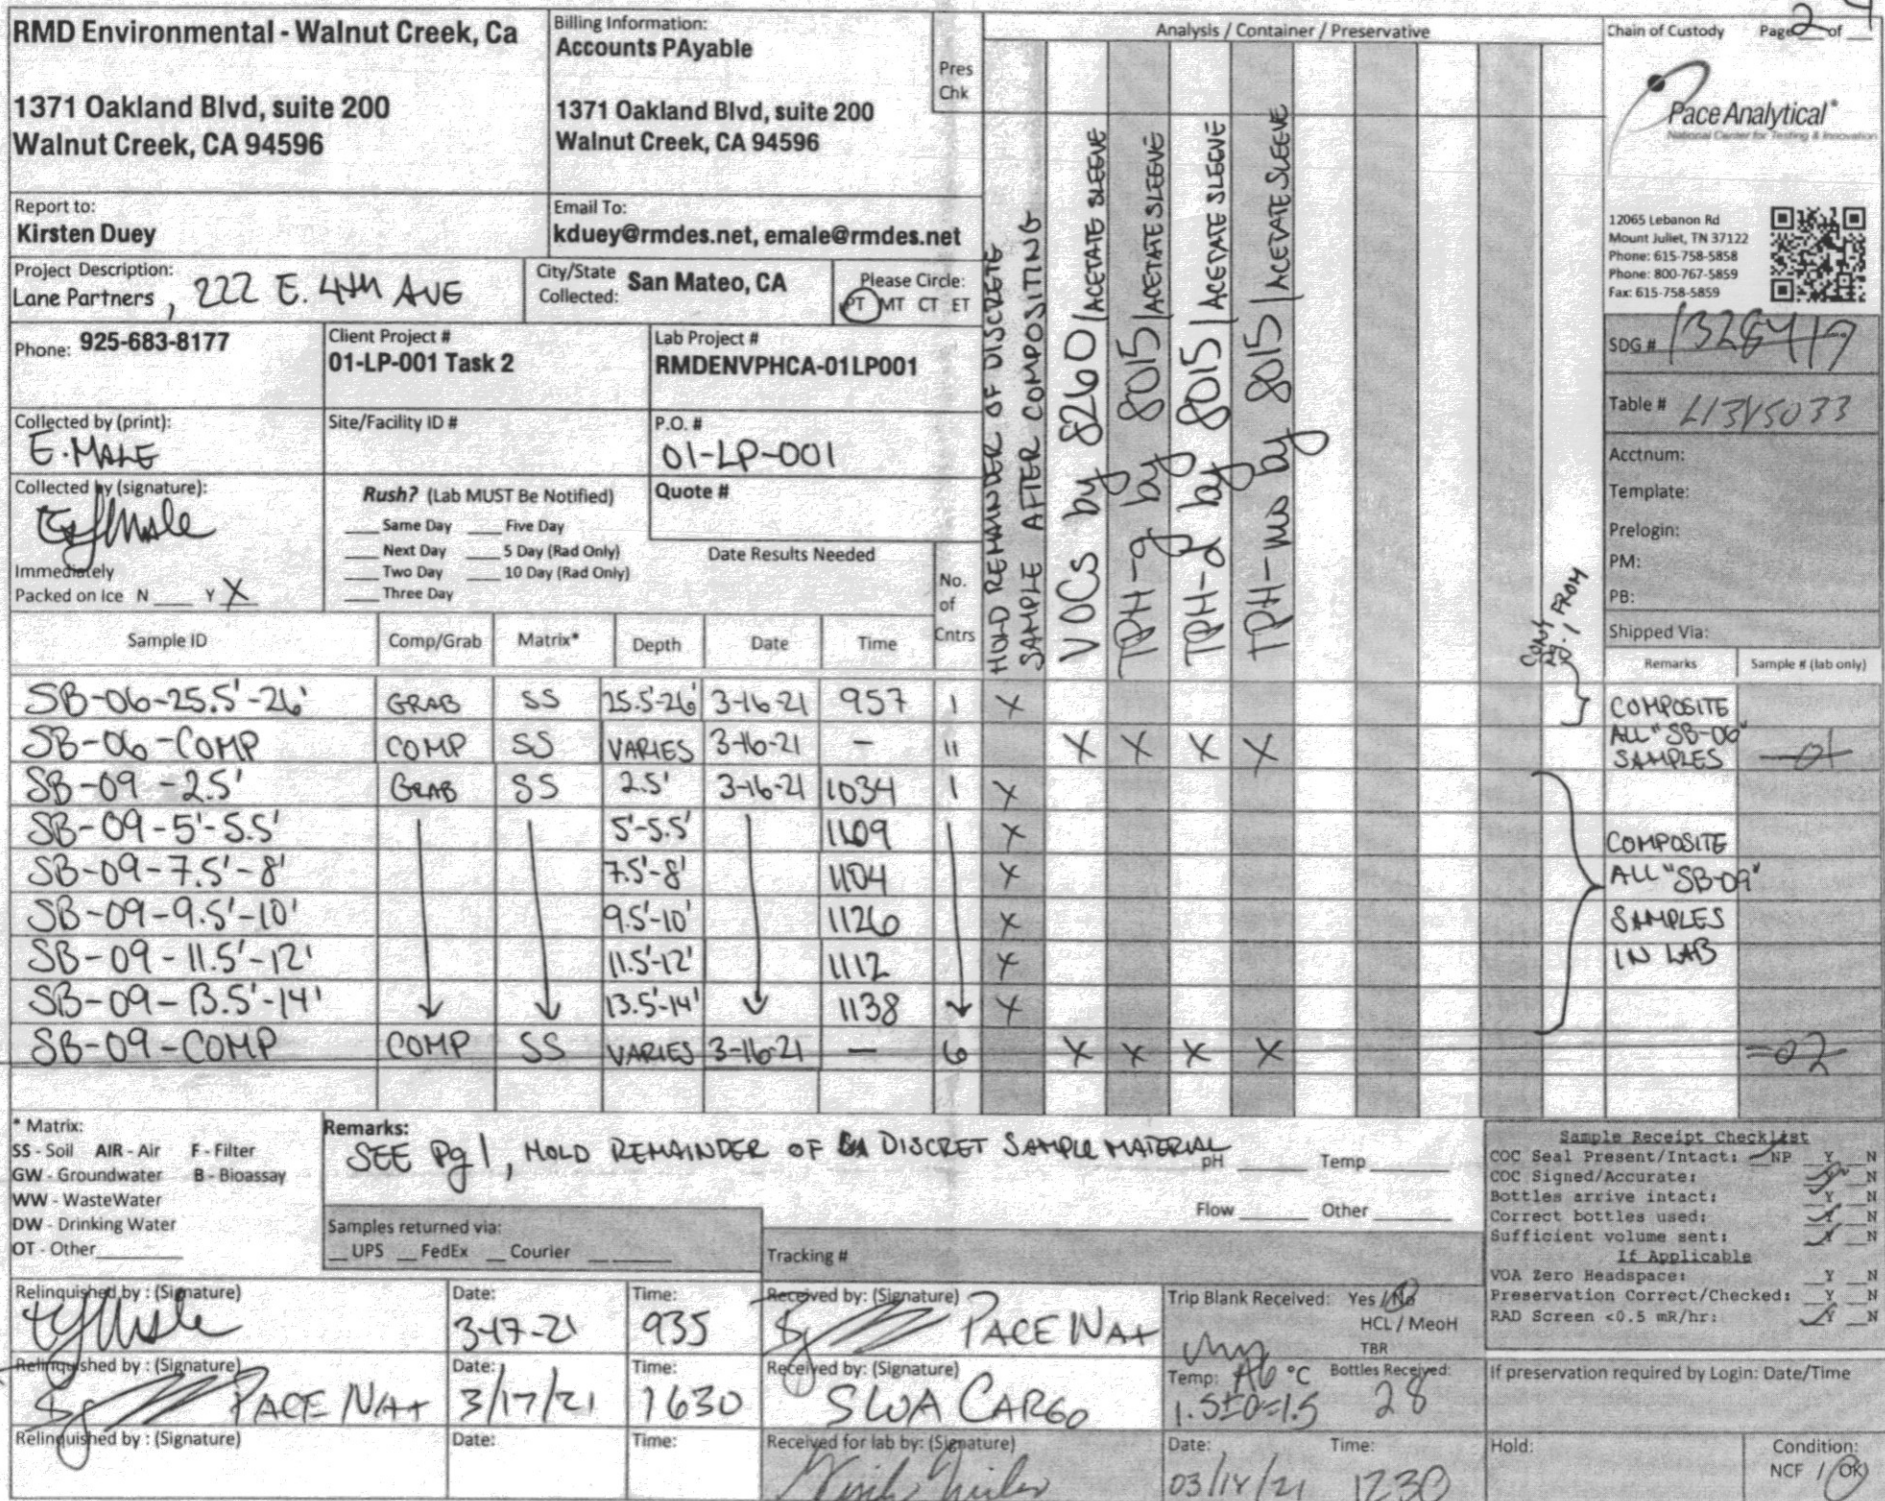 RMD Environmental - Walnut Creek, Ca
1371 Oakland Blvd, suite 200
Walnut Creek, CA 94596
Billing Information:
Accounts PAyable
1371 Oakland Blvd, suite 200
Walnut Creek, CA 94596
Pres
Chk
Analysis / Container / Preservative
Chain of Custody Page 2 of 4
Pace Analytical®
National Center for Testing & Innovation
12065 Lebanon Rd
Mount Juliet, TN 37122
Phone: 615-758-5858
Phone: 800-767-5859
Fax: 615-758-5859
Report to:
Kirsten Duey
Email To:
kduey@rmdes.net, emale@rmdes.net
Project Description:
Lane Partners, 222 E. 4th AVE
City/State
Collected: San Mateo, CA
Please Circle:
PT MT CT ET
Phone: 925-683-8177
Client Project #
01-LP-001 Task 2
Lab Project #
RMDENVPHCA-01LP001
Collected by (print):
E. MALE
Site/Facility ID #
P.O. #
01-LP-001
Collected by (signature):
Immediately
Packed on Ice N ___ Y X
Rush? (Lab MUST Be Notified)
___ Same Day ___ Five Day
___ Next Day ___ 5 Day (Rad Only)
___ Two Day ___ 10 Day (Rad Only)
___ Three Day
Quote #
Date Results Needed
No.
of
Cntrs
HOLD REMAINDER OF DISCRETE
SAMPLE AFTER COMPOSITING
VOCs by 8260 | ACETATE SLEEVE
TPH-g by 8015 | ACETATE SLEEVE
TPH-d by 8015 | ACETATE SLEEVE
TPH-mo by 8015 | ACETATE SLEEVE
CONT. FROM
SDG #
Table # L1345033
Acctnum:
Template:
Prelogin:
PM:
PB:
Shipped Via:
Sample ID Comp/Grab Matrix* Depth Date Time Remarks Sample # (lab only)
SB-06-25.5'-26' GRAB SS 25.5'-26' 3-16-21 957 1 X
SB-06-COMP COMP SS VARIES 3-16-21 — 11 X X X X -01
COMPOSITE
ALL "SB-06"
SAMPLES
SB-09-2.5' GRAB SS 2.5' 3-16-21 1034 1 X
SB-09-5'-5.5' 5'-5.5' 1109 X
SB-09-7.5'-8' 7.5'-8' 1104 X
SB-09-9.5'-10' 9.5'-10' 1126 X
SB-09-11.5'-12' 11.5'-12' 1112 X
SB-09-13.5'-14' 13.5'-14' 1138 X
COMPOSITE
ALL "SB-09"
SAMPLES
IN LAB
SB-09-COMP COMP SS VARIES 3-16-21 — 6 X X X X -02
* Matrix:
SS - Soil AIR - Air F - Filter
GW - Groundwater B - Bioassay
WW - WasteWater
DW - Drinking Water
OT - Other
Remarks:
SEE Pg 1, HOLD REMAINDER OF DISCRET SAMPLE MATERIAL
pH ___ Temp ___
Flow ___ Other ___
Samples returned via:
__ UPS __ FedEx __ Courier
Tracking #
Sample Receipt Checklist
COC Seal Present/Intact: NP Y N
COC Signed/Accurate: N
Bottles arrive intact: Y N
Correct bottles used: Y N
Sufficient volume sent: Y N
If Applicable
VOA Zero Headspace: Y N
Preservation Correct/Checked: Y N
RAD Screen <0.5 mR/hr: Y N
Relinquished by : (Signature)
Date: 3-17-21
Time: 935
Received by: (Signature)
PACE NAt
Trip Blank Received: Yes / No
HCL / MeoH
TBR
Relinquished by : (Signature)
PACE NAt
Date: 3/17/21
Time: 1630
Received by: (Signature)
SWA CARGO
Temp: A6 °C Bottles Received:
1.5±0=1.5 28
If preservation required by Login: Date/Time
Relinquished by : (Signature)
Date:
Time:
Received for lab by: (Signature)
Date: Time: 1230
Hold:
Condition:
NCF / OK